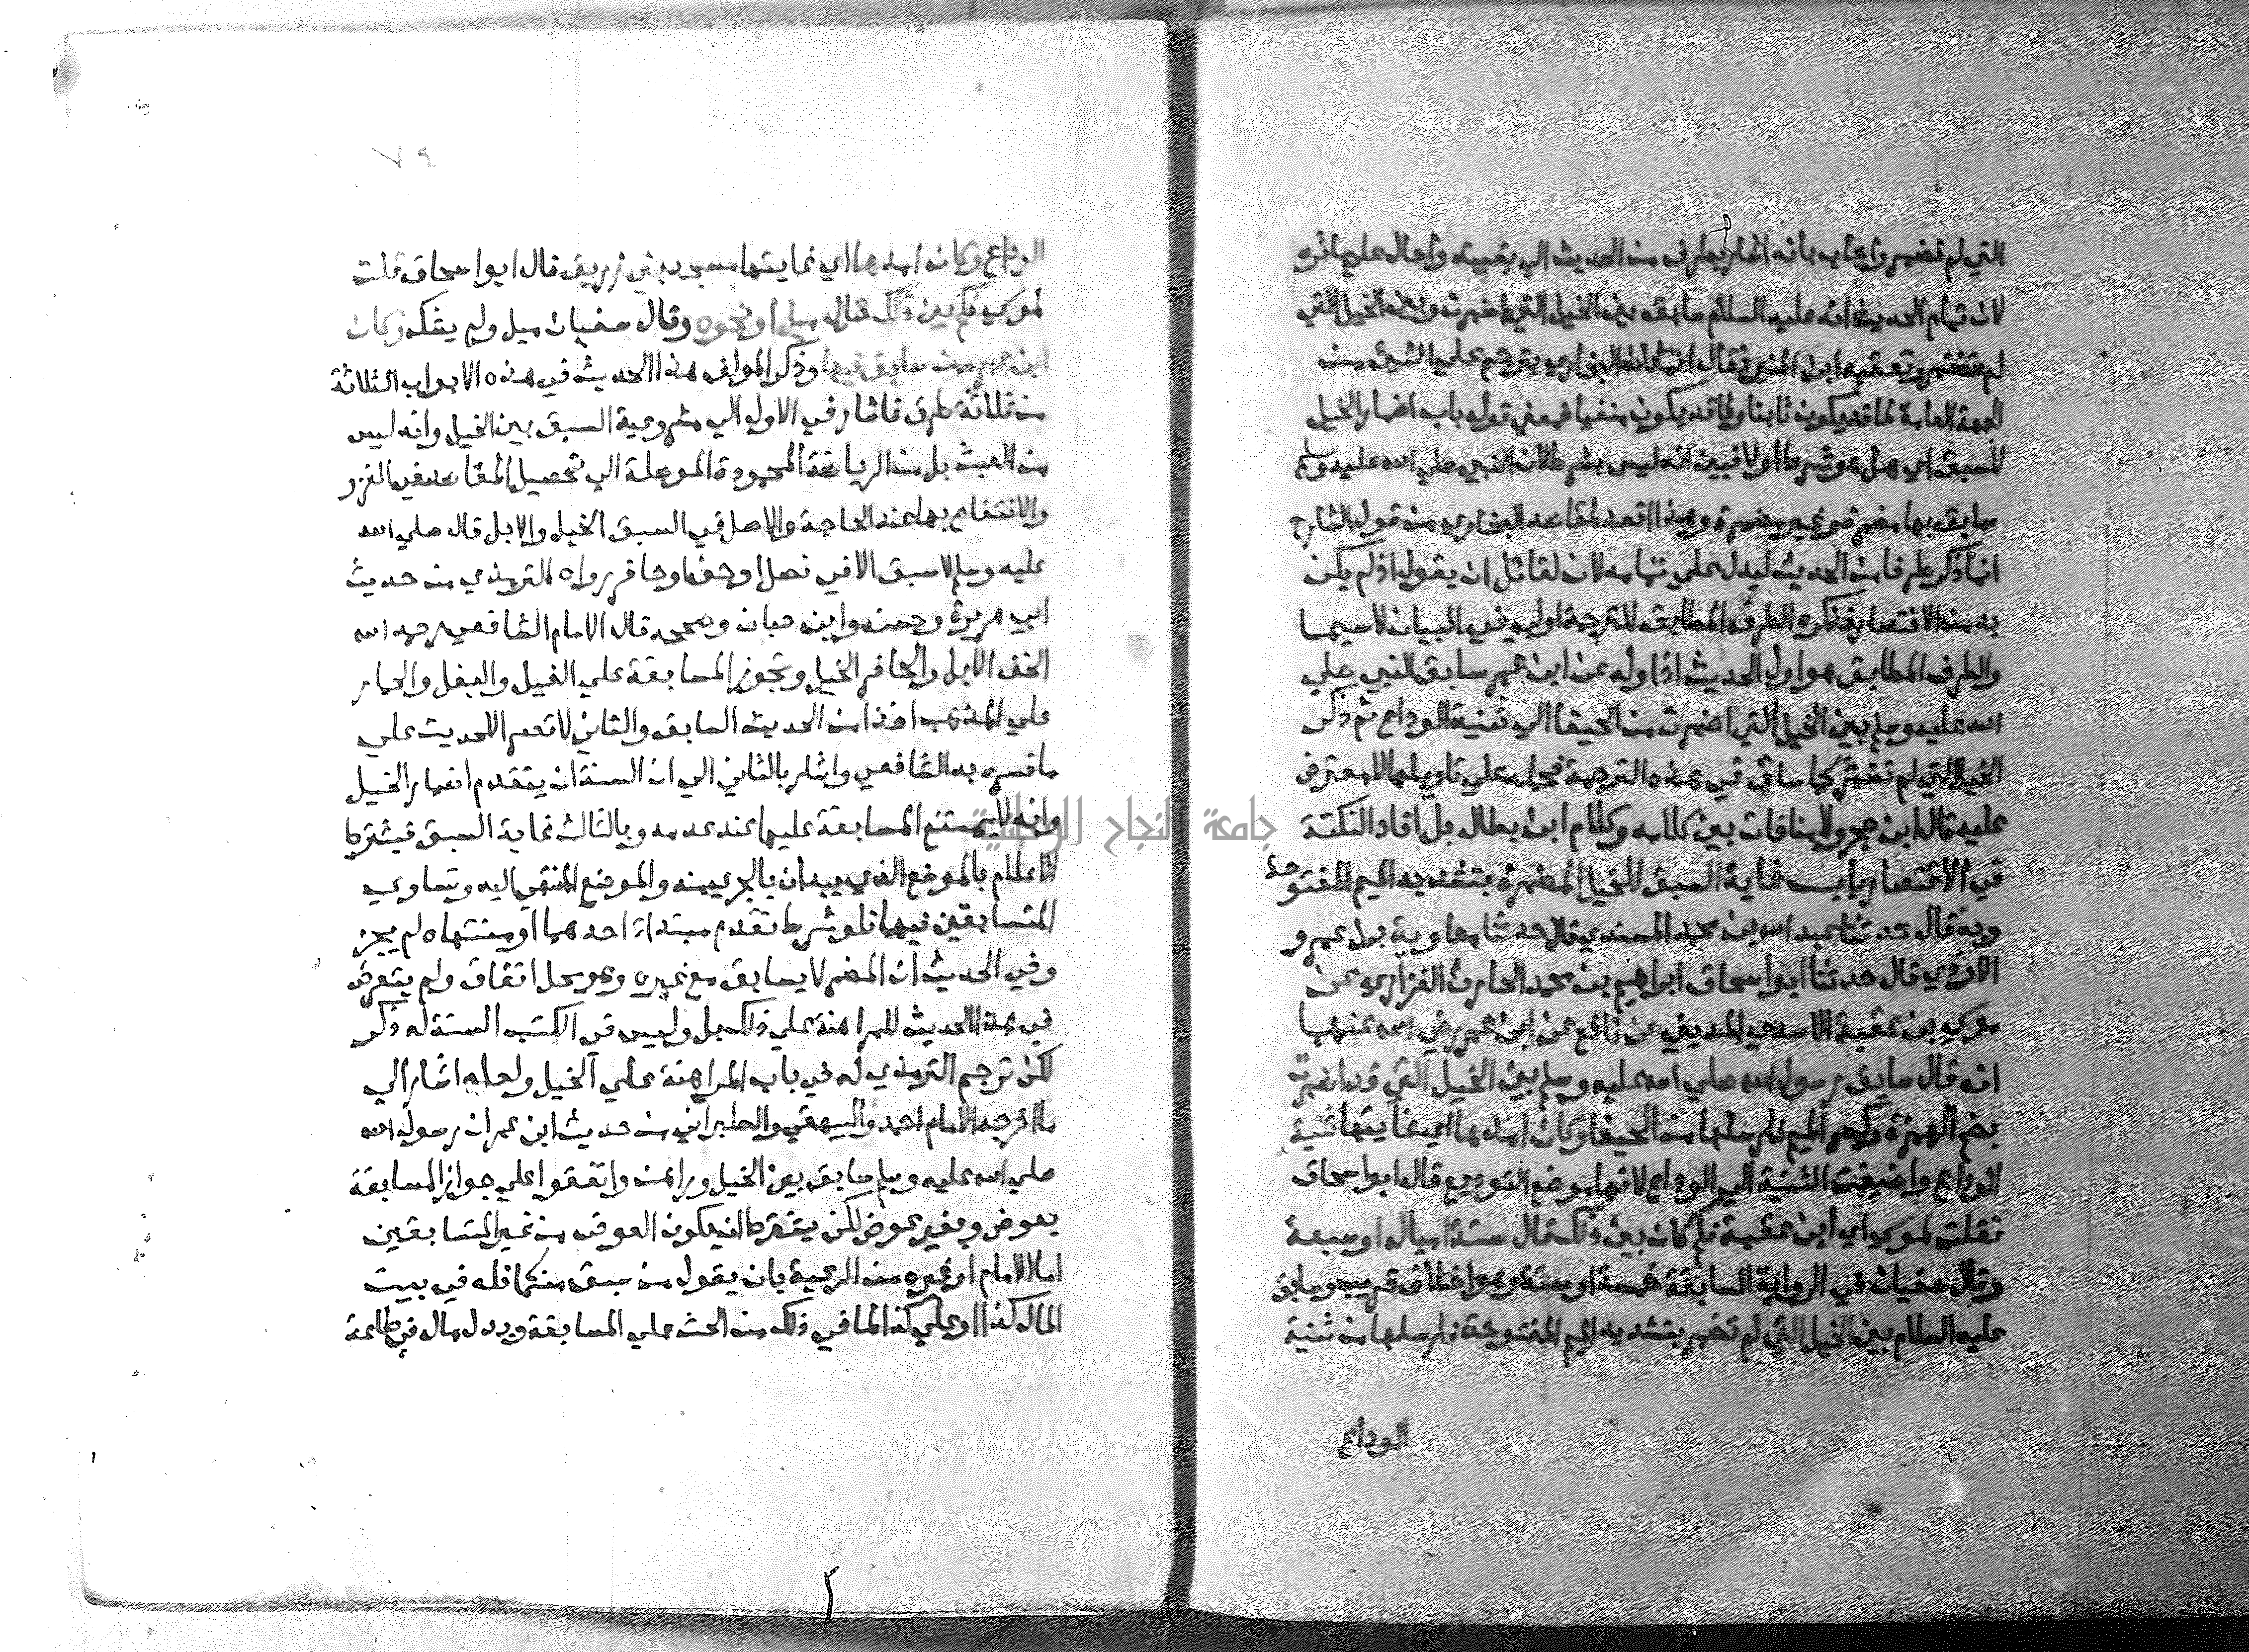 التي لم تضمر واجاب بانه اشار بطرف من الحديث الي بقيته واحال علي سائره
لان تمام الحديث انه عليه السلام سابق بين الخيل التي اضمرت وبين الخيل التي
لم تضمر وتعقبه ابن المنير فقال انما كان البخاري يترجم علي الشيء من
الجهة العامة لما قد يكون ثابتا ولما قد يكون منفيا فمعني قوله باب اضمار الخيل
للسبق اي هل هو شرط اولا فبين انه ليس بشرط لان النبي صلي الله عليه وسلم
سابق بها مضمرة وغير مضمرة وهذا اقعد لمقاصد البخاري من قول الشارح
انما ذكر طرفا من الحديث ليدل علي تمامه لان لقائل ان يقول اذ لم يكن
بد من الاقتصار فذكره الطرف المطابق للترجمة اولي في البيان لاسيما
والطرف المطابق هو اول الحديث اذ اوله عن ابن عمر سابق النبي صلي
الله عليه وسلم بين الخيل التي اضمرت من الحيفا الي ثنية الوداع ثم ذكر
الخيل التي لم تضمر كما ساق في هذه الترجمة فحمله علي تاويلها لا معترض
عليه قال ابن حجر ولا منافات بين كلامه وكلام ابن بطال بل افاد النكتة
في الاقتصار باب غاية السبق للخيل المضمرة بتشديد الميم المفتوحة
وبه قال حدثنا عبد الله بن محمد المسندي قال حدثنا معاوية بن عمرو
الازدي قال حدثنا ابو اسحاق ابراهيم بن محمد الحارث الفزاري عن
موسي بن عقبة الاسدي المديني عن نافع عن ابن عمر رضي الله عنهما
انه قال سابق رسول الله صلي الله عليه وسلم بين الخيل التي قد اضمرت
بضم الهمزة وكسر الميم فارسلها من الحيفا وكان امدها اي غايتها ثنية
الوداع واضيفت الثنية الي الوداع لانها موضع التوديع قال ابو اسحاق
فقلت لموسي اي ابن عقبة فكم كان بين ذلك قال ستة اميال او سبعة
وقال سفيان في الرواية السابقة خمسة او ستة وهو اختلاف قريب وسابق
عليه السلام بين الخيل التي لم تضمر بتشديد الميم المفتوحة فارسلها من ثنية
الوداع
٧٩
الوداع وكان امدها اي غايتها مسجد بني زريق قال ابو اسحاق قلت
لموسي فكم بين ذلك قال ميل او نحوه وقال سفيان ميل ولم يشك وكان
ابن عمر ممن سابق فيها وذكر المولف هذا الحديث في هذه الابواب الثلاثة
من ثلاثة طرق فاشار في الاول الي مشروعية السبق بين الخيل وانه ليس
من العبث بل من الرياضة المحمودة الموصلة الي تحصيل المقاصد في الغزو
والانتفاع بها عند الحاجة والاصل في السبق الخيل والابل قال صلي الله
عليه وسلم لا سبق الا في نصل او خف او حافر رواه الترمذي من حديث
ابي هريرة وحسنه وابن حبان وصححه قال الامام الشافعي رحمه الله
الخف الابل والحافر الخيل وتجوز المسابقة علي الفيل والبغل والحمار
علي المذهب اخذا من الحديث السابق والثاني لا قصر الحديث علي
ما فسره به الشافعي واشار بالثاني الي ان السنة ان يتقدم اضمار الخيل
وانه لا يمتنع المسابقة عليها عند عدمه وبالثالث غاية السبق فيشترط
الاعلام بالموضع الذي يبدان بالجري منه والموضع المنتهي اليه وتساوي
المتسابقين فيهما فلو شرط تقدم مبتدا احدهما او منتهاه لم يجز
وفي الحديث ان المضمر لا يسابق مع غيره وهو محل اتفاق ولم يتعرض
في هذا الحديث للمراهنة علي ذلك بل وليس في الكتب الستة له ذكر
لكن ترجم الترمذي له في باب المراهنة علي الخيل ولعله اشار الي
ما اخرجه الامام احمد والبيهقي والطبراني من حديث ابن عمر ان رسول الله
صلي الله عليه وسلم سابق بين الخيل وراهن واتفقوا علي جواز المسابقة
بعوض وبغير عوض لكن يشترط ان يكون العوض من غير المتسابقين
اما الامام او غيره من الرعية بان يقول من سبق منكما فله في بيت
المال كذا او علي كذا لما في ذلك من الحث علي المسابقة وبذل مال في طاعة
جامعة النجاح الوطنية